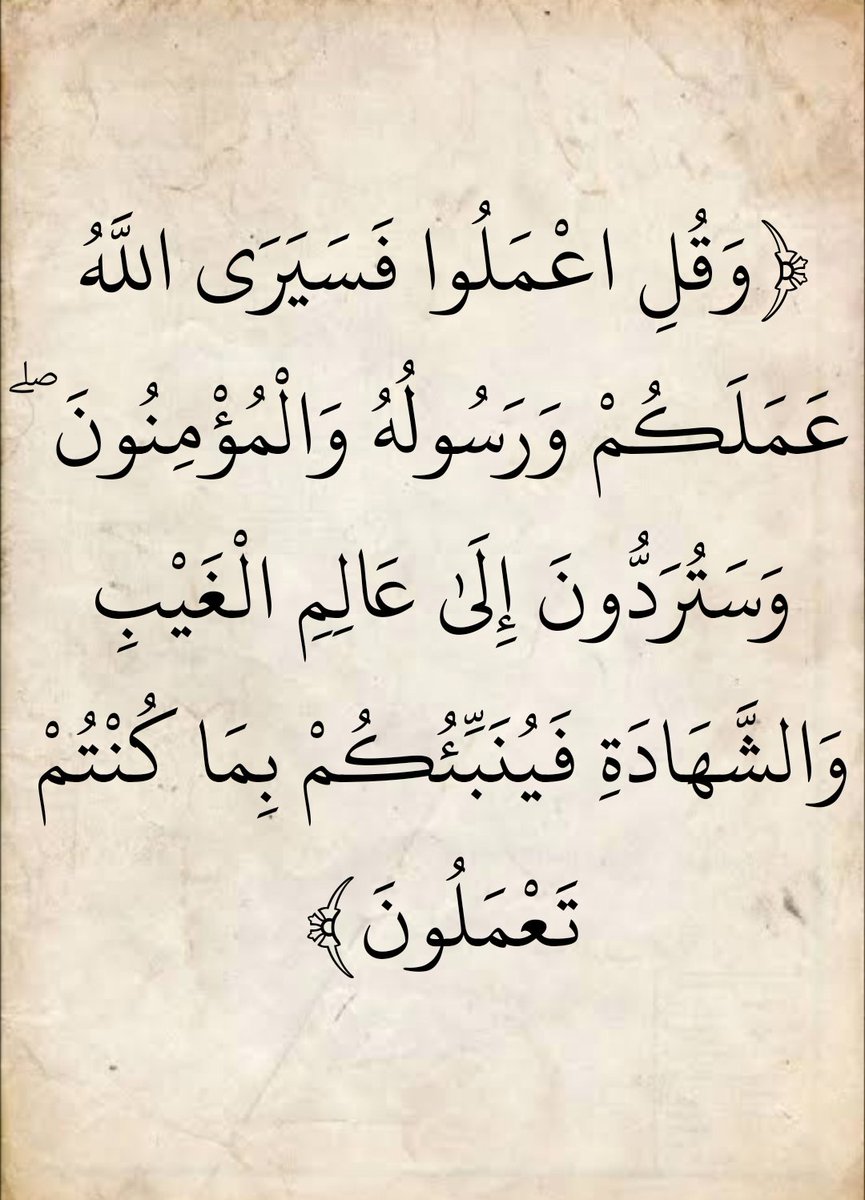 ﴿وَقُلِ اعْمَلُوا فَسَيَرَى اللَّهُ
عَمَلَكُمْ وَرَسُولُهُ وَالْمُؤْمِنُونَ ۖ
وَسَتُرَدُّونَ إِلَىٰ عَالِمِ الْغَيْبِ
وَالشَّهَادَةِ فَيُنَبِّئُكُمْ بِمَا كُنْتُمْ
تَعْمَلُونَ﴾